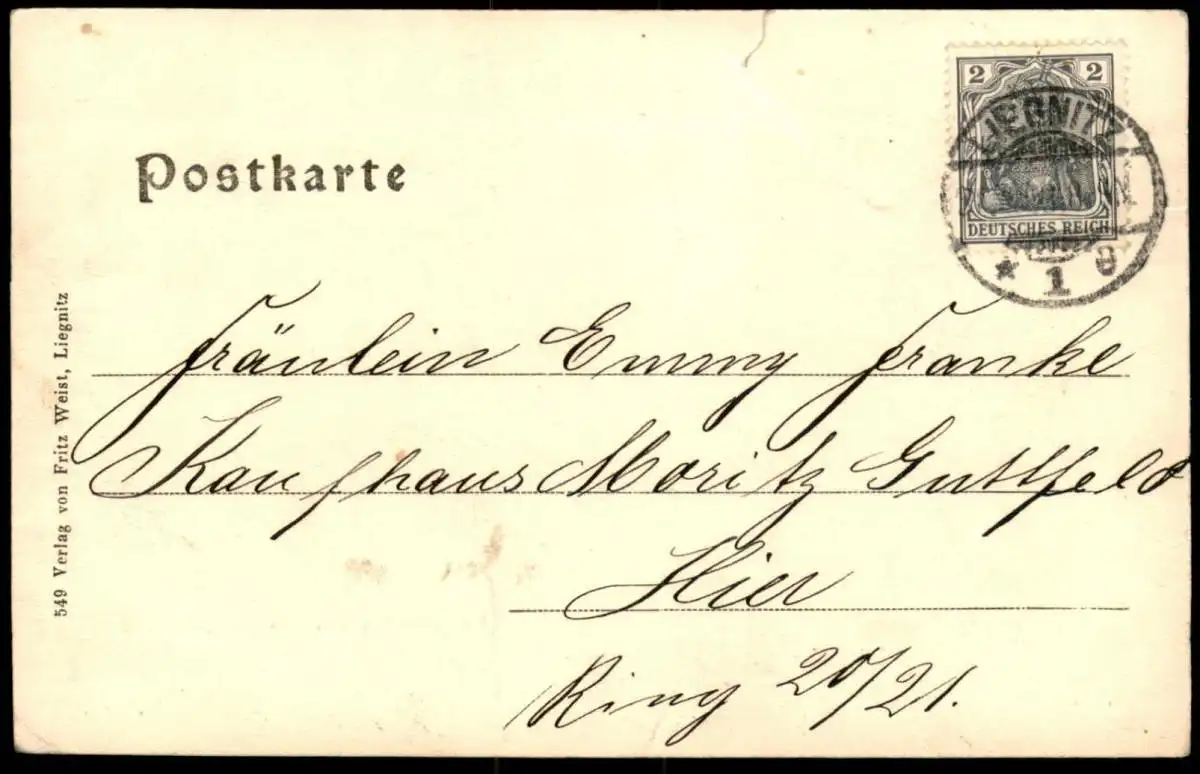 Postkarte
2 2
DEUTSCHES REICH
LIEGNITZ
* 1 g
Fräulein Emmy Franke
Kaufhaus Moritz Guttfeld
Hier
Ring 20/21.
549 Verlag von Fritz Weist, Liegnitz